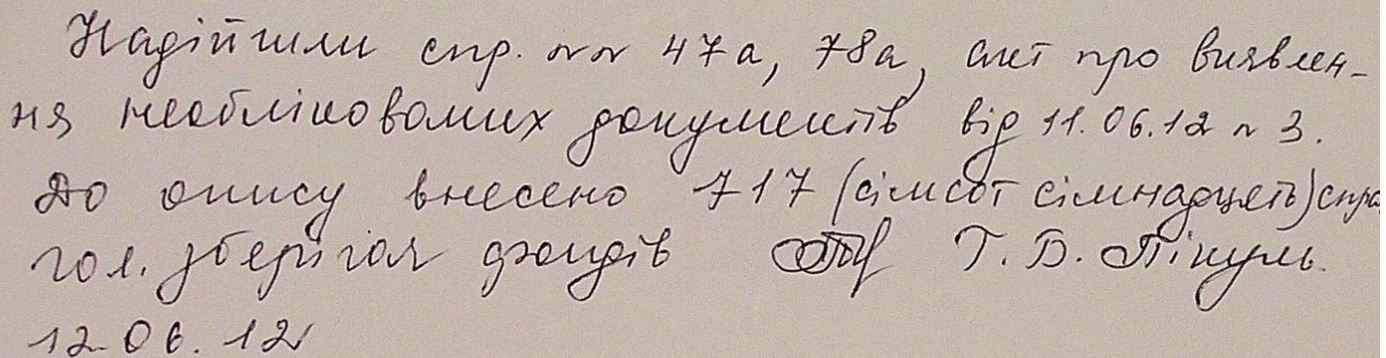 Надійшли спр. №№ 47а, 78а, акт про виявлен-
ня необлікованих документів від 11.06.12 № 3.
До опису внесено 717 (сімсот сімнадцять) спра
гол. зберігач фондів Т. Б. Пікуль.
12.06.12